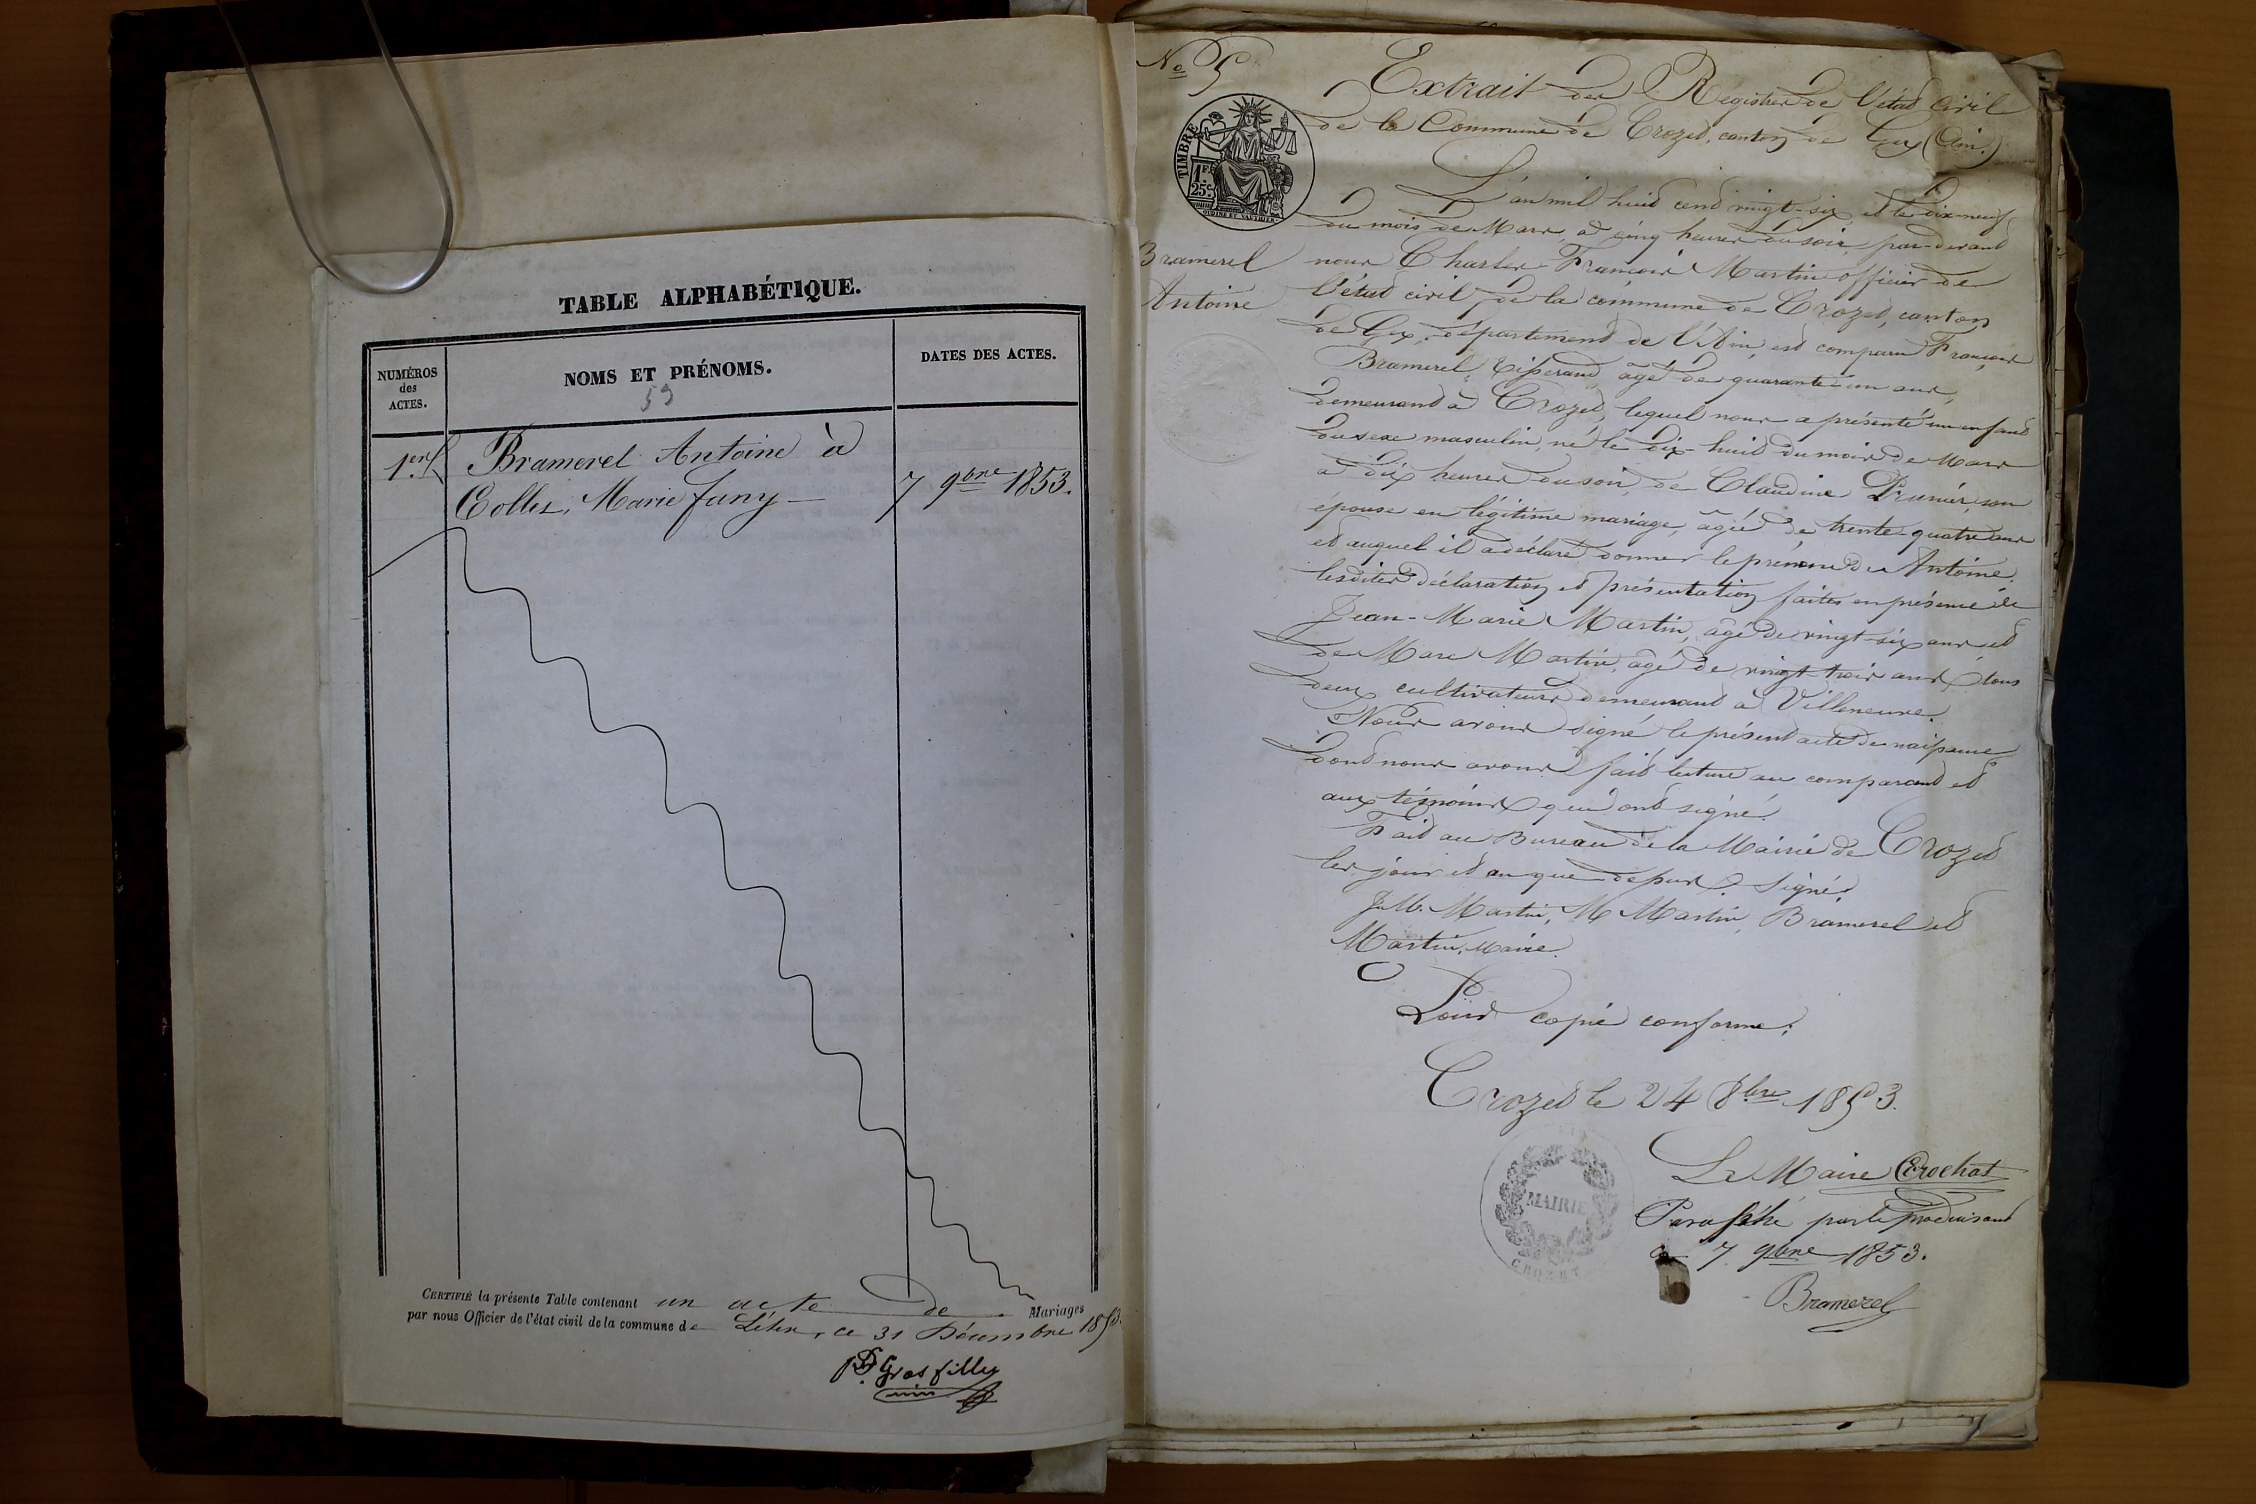 TABLE ALPHABÉTIQUE.
NUMÉROS
des
ACTES.
NOMS ET PRÉNOMS.
59
DATES DES ACTES.
1er
Bramerel Antoine à
Collet, Marie fany
7 9bre 1853.
CERTIFIÉ la présente Table contenant un acte de Mariages
par nous Officier de l'état civil de la commune de ce 31 Décembre 1853.
Grosfilley
No 5
Extrait des Registres de l'état civil
de la Commune de Crozet, canton de Gex (Ain.)
TIMBRE
1 FR
25 c
L'an mil huit cent vingt-six et le dix-neuf
du mois de Mars, à cinq heures du soir, par-devant
Bramerel
Antoine
nous Charles François Martin officier de
l'état civil de la commune de Crozet, canton
de Gex, département de l'Ain, est comparu François
Bramerel, tisserand, âgé de quarante-un ans,
demeurant à Crozet, lequel nous a présenté un enfant
du sexe masculin, né le dix-huit du mois de Mars
à dix heures du soir, de Claudine Prunier, son
épouse en légitime mariage, âgée de trente-quatre ans
et auquel il a déclaré donner le prénom de Antoine.
lesdites déclaration et présentation faites en présence de
Jean-Marie Martin, âgé de vingt-six ans et
de Marc Martin, âgé de vingt-trois ans, tous
deux cultivateurs demeurant à Villeneuve.
Nous avons signé le présent acte de naissance
dont nous avons fait lecture au comparant et
aux témoins qui ont signé
Fait au Bureau de la Mairie de Crozet
les jour et an que dessus. Signés
J.M. Martin, M Martin, Bramerel et
Martin, Maire.
Pour copie conforme:
Crozet le 24 8bre 1853.
MAIRIE
CROZET
Le Maire Crochat
Paraphé par le produisant
7 9bre 1853.
Bramerel